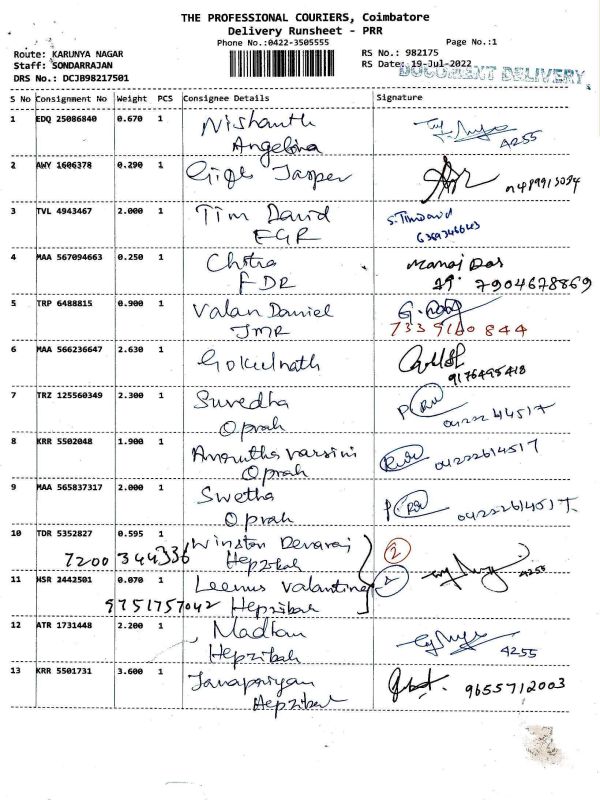 THE PROFESSIONAL COURIERS, Coimbatore
Delivery Runsheet - PRR
Phone No.:0422-3505555
Page No.:1
Route: KARUNYA NAGAR
RS No.: 982175
Staff: SONDARRAJAN
RS Date: 19-Jul-2022
DOCUMENT DELIVERY
DRS No.: DCJB98217501
S No Consignment No Weight PCS Consignee Details Signature
1 EDQ 25086840 0.670 1 Nishanth
Angelina
4255
2 AWY 1606378 0.290 1 Gigi Jasper
3 TVL 4943467 2.000 1 Tim David
EGR
S. Timdavid
4 MAA 567094663 0.250 1 Chitra
FDR
Manoj Das
7904678869
5 TRP 6488815 0.900 1 Valan Daniel
JMR
7339160844
6 MAA 566236647 2.630 1 Gokulnath
9176495418
7 TRZ 125560349 2.300 1 Suvedha
Oprah
8 KRR 5502048 1.900 1 Amrutha varsini
Oprah
04222614517
9 MAA 565837317 2.000 1 Swetha
Oprah
04222614517
10 TDR 5352827 0.595 1 Winston Devaraj
7200 344336 Hepzibah
2
11 HSR 2442501 0.070 1 Leenus Valantina
9751757042 Hepzibah
4255
12 ATR 1731448 2.200 1 Madhan
Hepzibah
4255
13 KRR 5501731 3.600 1 Janapriyan
Hepzibah
9655712003